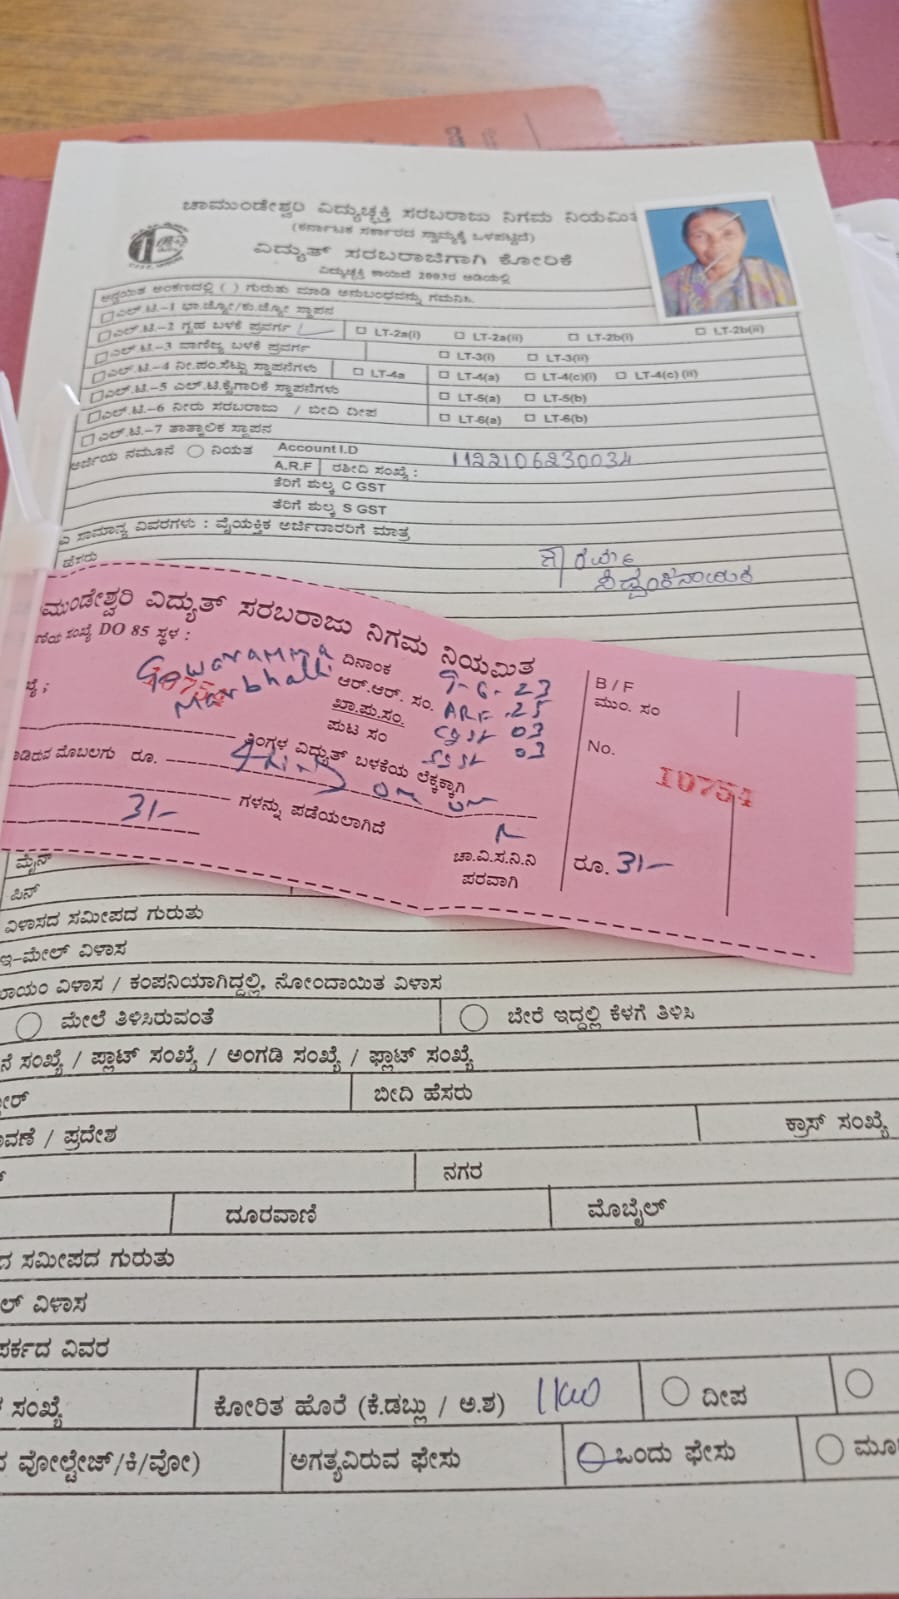 ಚಾಮುಂಡೇಶ್ವರಿ ವಿದ್ಯುಚ್ಛಕ್ತಿ ಸರಬರಾಜು ನಿಗಮ ನಿಯಮಿತ
(ಕರ್ನಾಟಕ ಸರ್ಕಾರದ ಸ್ವಾಮ್ಯಕ್ಕೆ ಒಳಪಟ್ಟಿದೆ)
ವಿದ್ಯುತ್ ಸರಬರಾಜಿಗಾಗಿ ಕೋರಿಕೆ
ವಿದ್ಯುಚ್ಛಕ್ತಿ ಕಾಯಿದೆ 2003ರ ಅಡಿಯಲ್ಲಿ
ಅನ್ವಯಿತ ಅಂಕಣದಲ್ಲಿ ( ) ಗುರುತು ಮಾಡಿ ಅನುಬಂಧವನ್ನು ಗಮನಿಸಿ.
ಎಲ್.ಟಿ.-1 ಭಾ.ಜ್ಯೋ/ಕು.ಜ್ಯೋ ಸ್ಥಾಪನ
ಎಲ್.ಟಿ.-2 ಗೃಹ ಬಳಕೆ ಪ್ರವರ್ಗ LT-2a(i) LT-2a(ii) LT-2b(i) LT-2b(ii)
ಎಲ್.ಟಿ.-3 ವಾಣಿಜ್ಯ ಬಳಕೆ ಪ್ರವರ್ಗ LT-3(i) LT-3(ii)
ಎಲ್.ಟಿ.-4 ನೀ.ಪಂ.ಸೆಟ್ಟು ಸ್ಥಾಪನೆಗಳು LT-4a LT-4(a) LT-4(c)(i) LT-4(c) (ii)
ಎಲ್.ಟಿ.-5 ಎಲ್.ಟಿ.ಕೈಗಾರಿಕೆ ಸ್ಥಾಪನೆಗಳು LT-5(a) LT-5(b)
ಎಲ್.ಟಿ.-6 ನೀರು ಸರಬರಾಜು / ಬೀದಿ ದೀಪ LT-6(a) LT-6(b)
ಎಲ್.ಟಿ.-7 ತಾತ್ಕಾಲಿಕ ಸ್ಥಾಪನ
ಅರ್ಜಿಯ ನಮೂನೆ ನಿಯತ Account I.D 1122106230034
A.R.F ರಶೀದಿ ಸಂಖ್ಯೆ :
ತೆರಿಗೆ ಶುಲ್ಕ C GST
ತೆರಿಗೆ ಶುಲ್ಕ S GST
ಎ ಸಾಮಾನ್ಯ ವಿವರಗಳು : ವೈಯಕ್ತಿಕ ಅರ್ಜಿದಾರರಿಗೆ ಮಾತ್ರ
ಹೆಸರು
ಮುಂಡೇಶ್ವರಿ ವಿದ್ಯುತ್ ಸರಬರಾಜು ನಿಗಮ ನಿಯಮಿತ
ಸಂಖ್ಯೆ DO 85 ಸ್ಥಳ :
Gowramma
Marbhalli
ದಿನಾಂಕ 7-6-23
ಆರ್.ಆರ್. ಸಂ. ARF .25
ಖಾ.ಪು.ಸಂ. CGST 03
ಪುಟ ಸಂ SGST 03
ತಿಂಗಳ ವಿದ್ಯುತ್ ಬಳಕೆಯ ಲೆಕ್ಕಕ್ಕಾಗಿ
ಮೊಬಲಗು ರೂ.
31/- ಗಳನ್ನು ಪಡೆಯಲಾಗಿದೆ
ಚಾ.ವಿ.ಸ.ನಿ.ನಿ
ಪರವಾಗಿ
B/F
ಮುಂ. ಸಂ
No.
10754
ರೂ. 31/-
ಮೈನ್
ಪಿನ್
ವಿಳಾಸದ ಸಮೀಪದ ಗುರುತು
ಇ-ಮೇಲ್ ವಿಳಾಸ
ಖಾಯಂ ವಿಳಾಸ / ಕಂಪನಿಯಾಗಿದ್ದಲ್ಲಿ, ನೋಂದಾಯಿತ ವಿಳಾಸ
ಮೇಲೆ ತಿಳಿಸಿರುವಂತೆ ಬೇರೆ ಇದ್ದಲ್ಲಿ ಕೆಳಗೆ ತಿಳಿಸಿ
ನೆ ಸಂಖ್ಯೆ / ಪ್ಲಾಟ್ ಸಂಖ್ಯೆ / ಅಂಗಡಿ ಸಂಖ್ಯೆ / ಫ್ಲಾಟ್ ಸಂಖ್ಯೆ
ಬೀದಿ ಹೆಸರು
ವಣೆ / ಪ್ರದೇಶ ಕ್ರಾಸ್ ಸಂಖ್ಯೆ
ನಗರ
ದೂರವಾಣಿ ಮೊಬೈಲ್
ದ ಸಮೀಪದ ಗುರುತು
ಲ್ ವಿಳಾಸ
ಪರ್ಕದ ವಿವರ
ಸಂಖ್ಯೆ ಕೋರಿತ ಹೊರೆ (ಕೆ.ಡಬ್ಲು / ಅ.ಶ) 1KW ದೀಪ
ದ ವೋಲ್ಟೇಜ್/ಕಿ/ವೋ) ಅಗತ್ಯವಿರುವ ಫೇಸು ಒಂದು ಫೇಸು ಮೂ